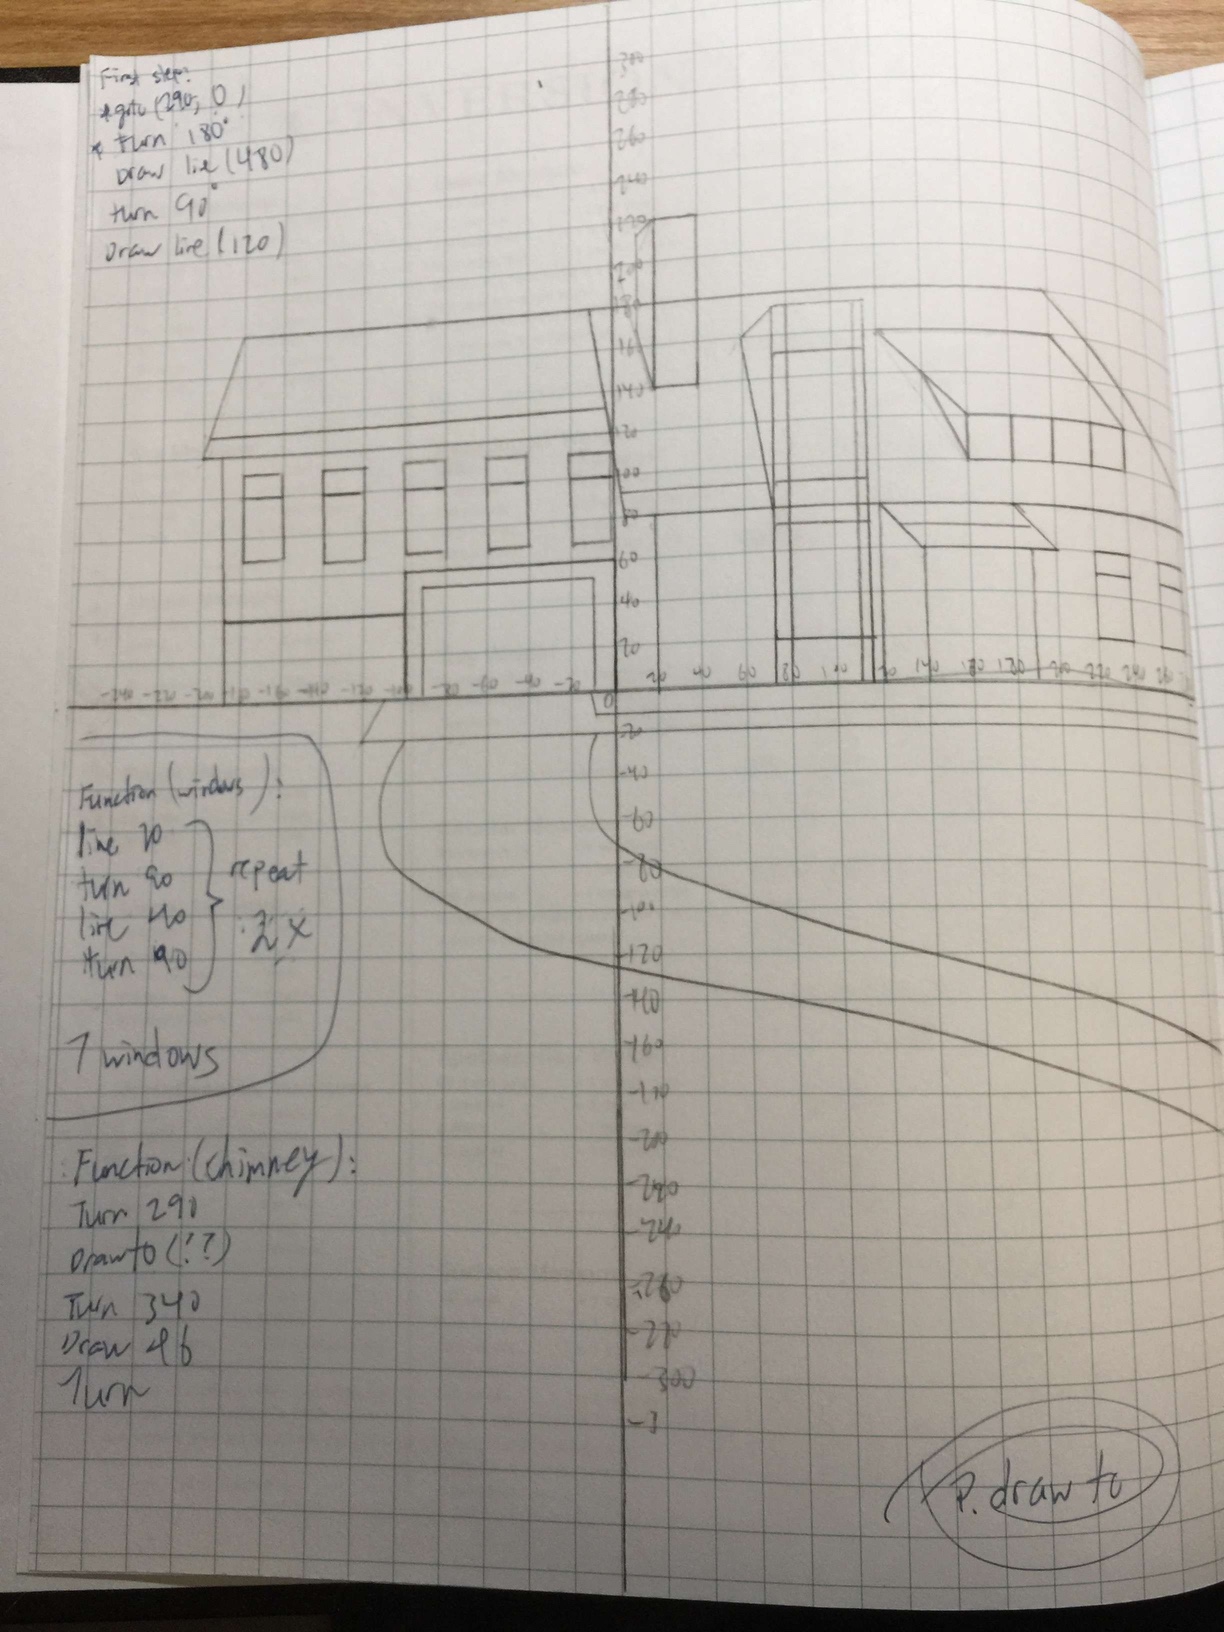 First step:
*goto (290, 0)
* Turn 180°
Draw lie (480)
turn 90°
Draw line (120)
300
280
260
240
220
200
180
160
140
120
100
80
60
40
20
0
20
40
60
80
-20
-40
-60
-80
-100
-120
-140
-160
-180
-200
-220
-240
-260
-280
-300
Function (windows):
line 20
turn 90
line 40
turn 90
repeat
2x
7 windows
Function (chimney):
Turn 290
Drawto (!?)
Turn 340
Draw 46
Turn
p. draw to